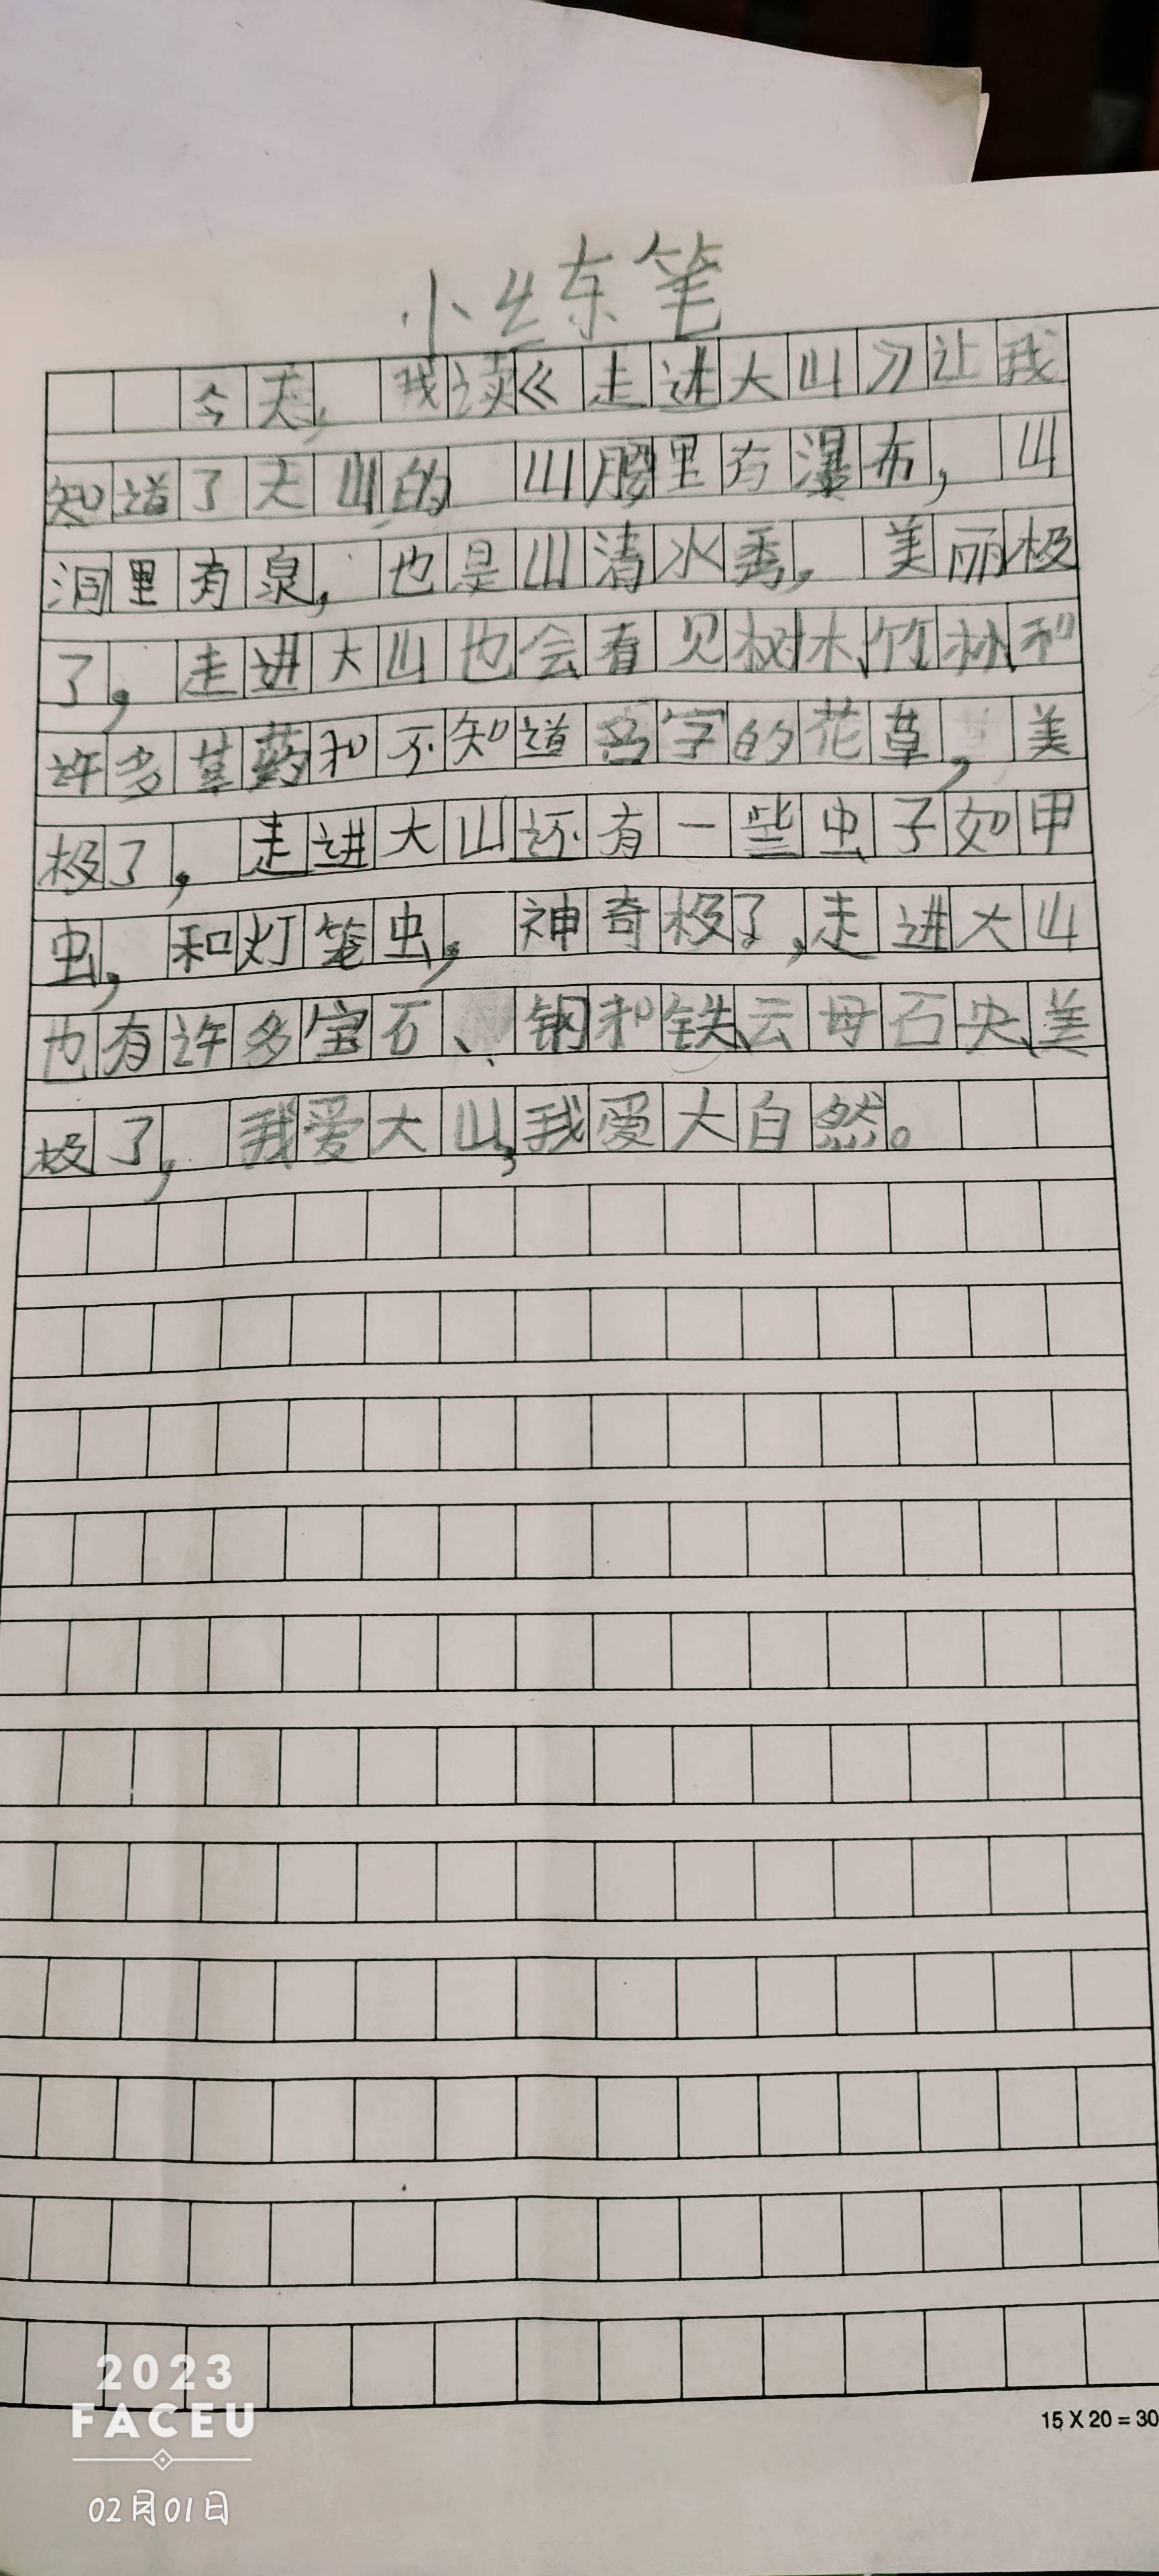 小练笔
今天，我读《走进大山》让我
知道了大山的 山腰里有瀑布，山
洞里有泉，也是山清水秀，美丽极
了，走进大山也会看见树木、竹林和
许多草药和不知道名字的花草，美
极了，走进大山还有一些虫子如甲
虫，和灯笼虫，神奇极了，走进大山
也有许多宝石、钢和铁云母石央、美
极了，我爱大山，我爱大自然。
15 X 20 = 30
2023
FACEU
02月01日